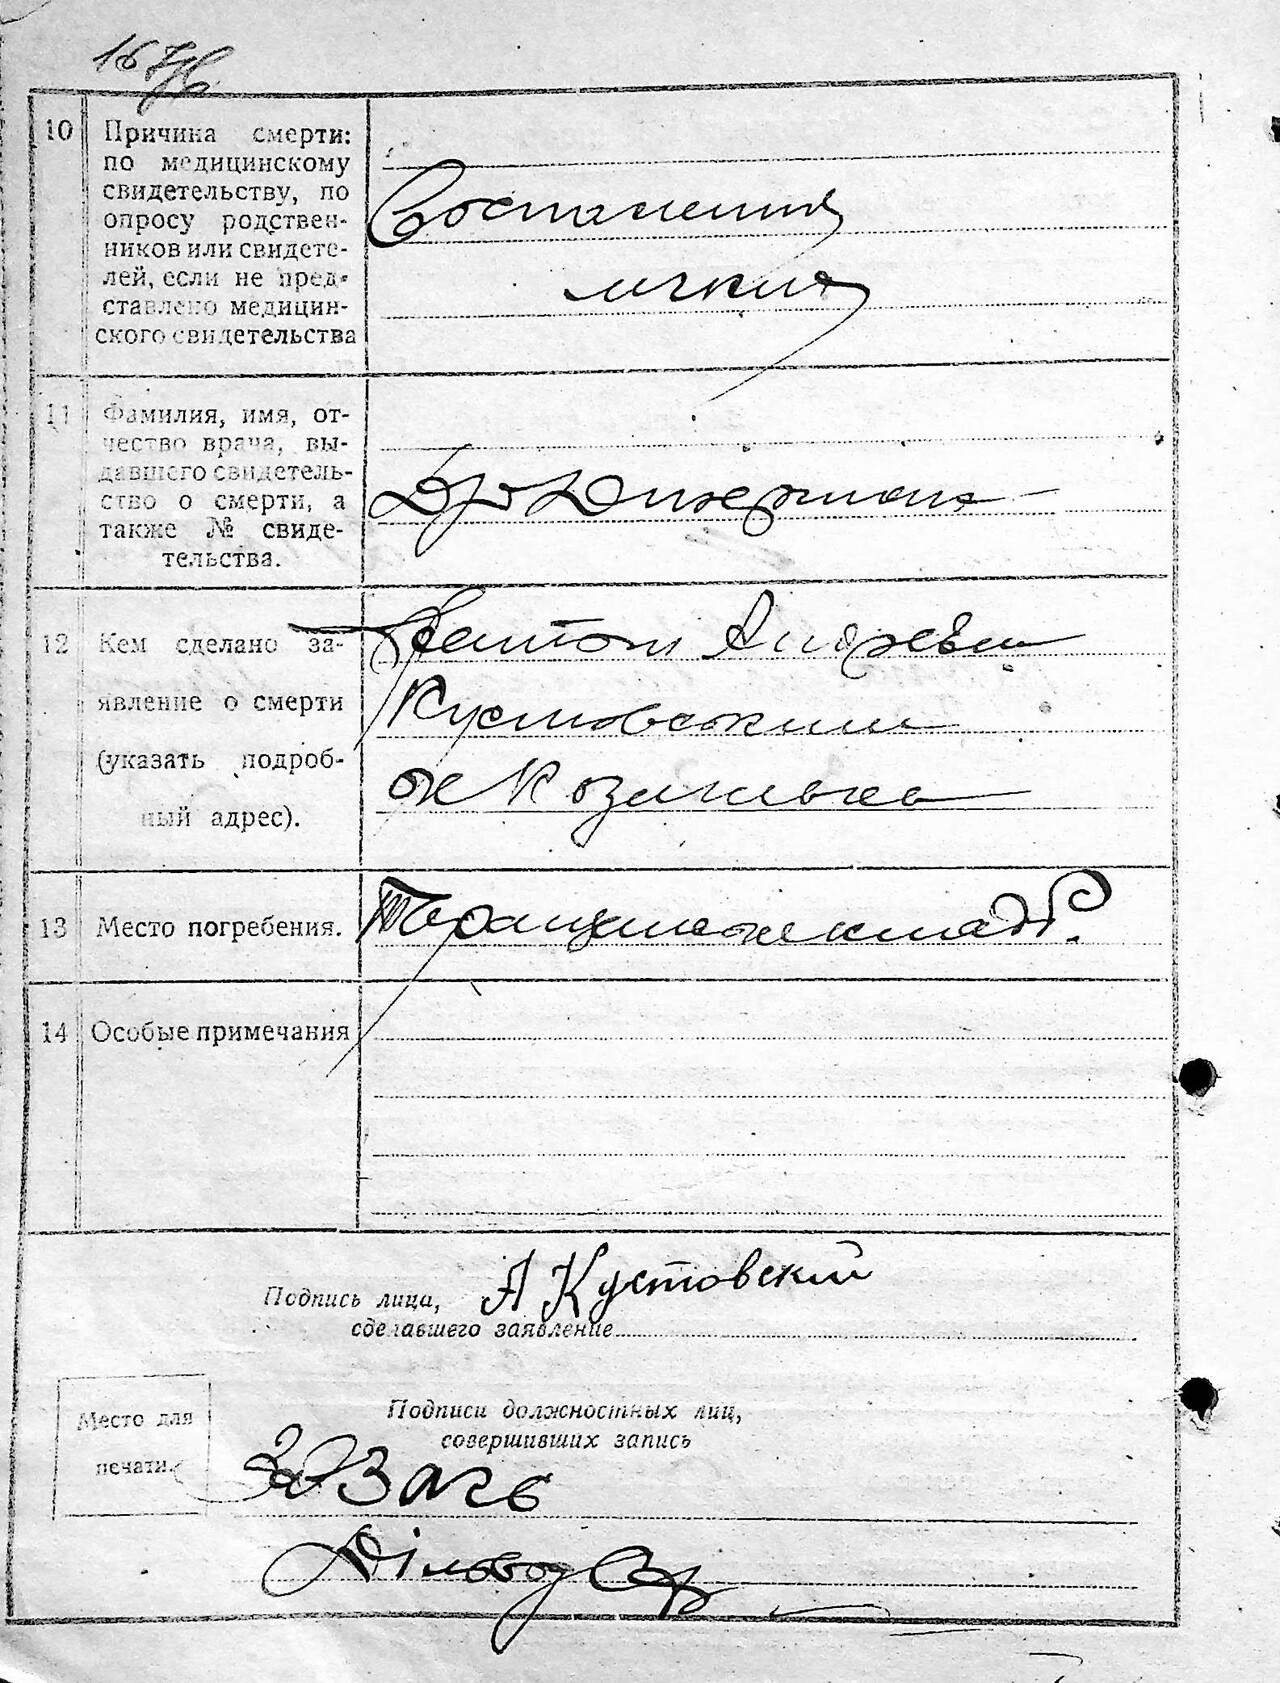 10
Причина смерти:
по медицинскому
свидетельству, по
опросу родствен-
ников или свидете-
лей, если не пред-
ставлено медицин-
ского свидетельства
Воспаления
11
Фамилия, имя, от-
чество врача, вы-
давшего свидетель-
ство о смерти, а
также № свиде-
тельства.
12
Кем сделано за-
явление о смерти
(указать подроб-
ный адрес).
Антон Андреевич
Кустовский
13
Место погребения.
14
Особые примечания
Подпись лица,
А Кустовский
сделавшего заявление
Место для
печати.
Подписи должностных лиц,
совершивших запись
Діловод